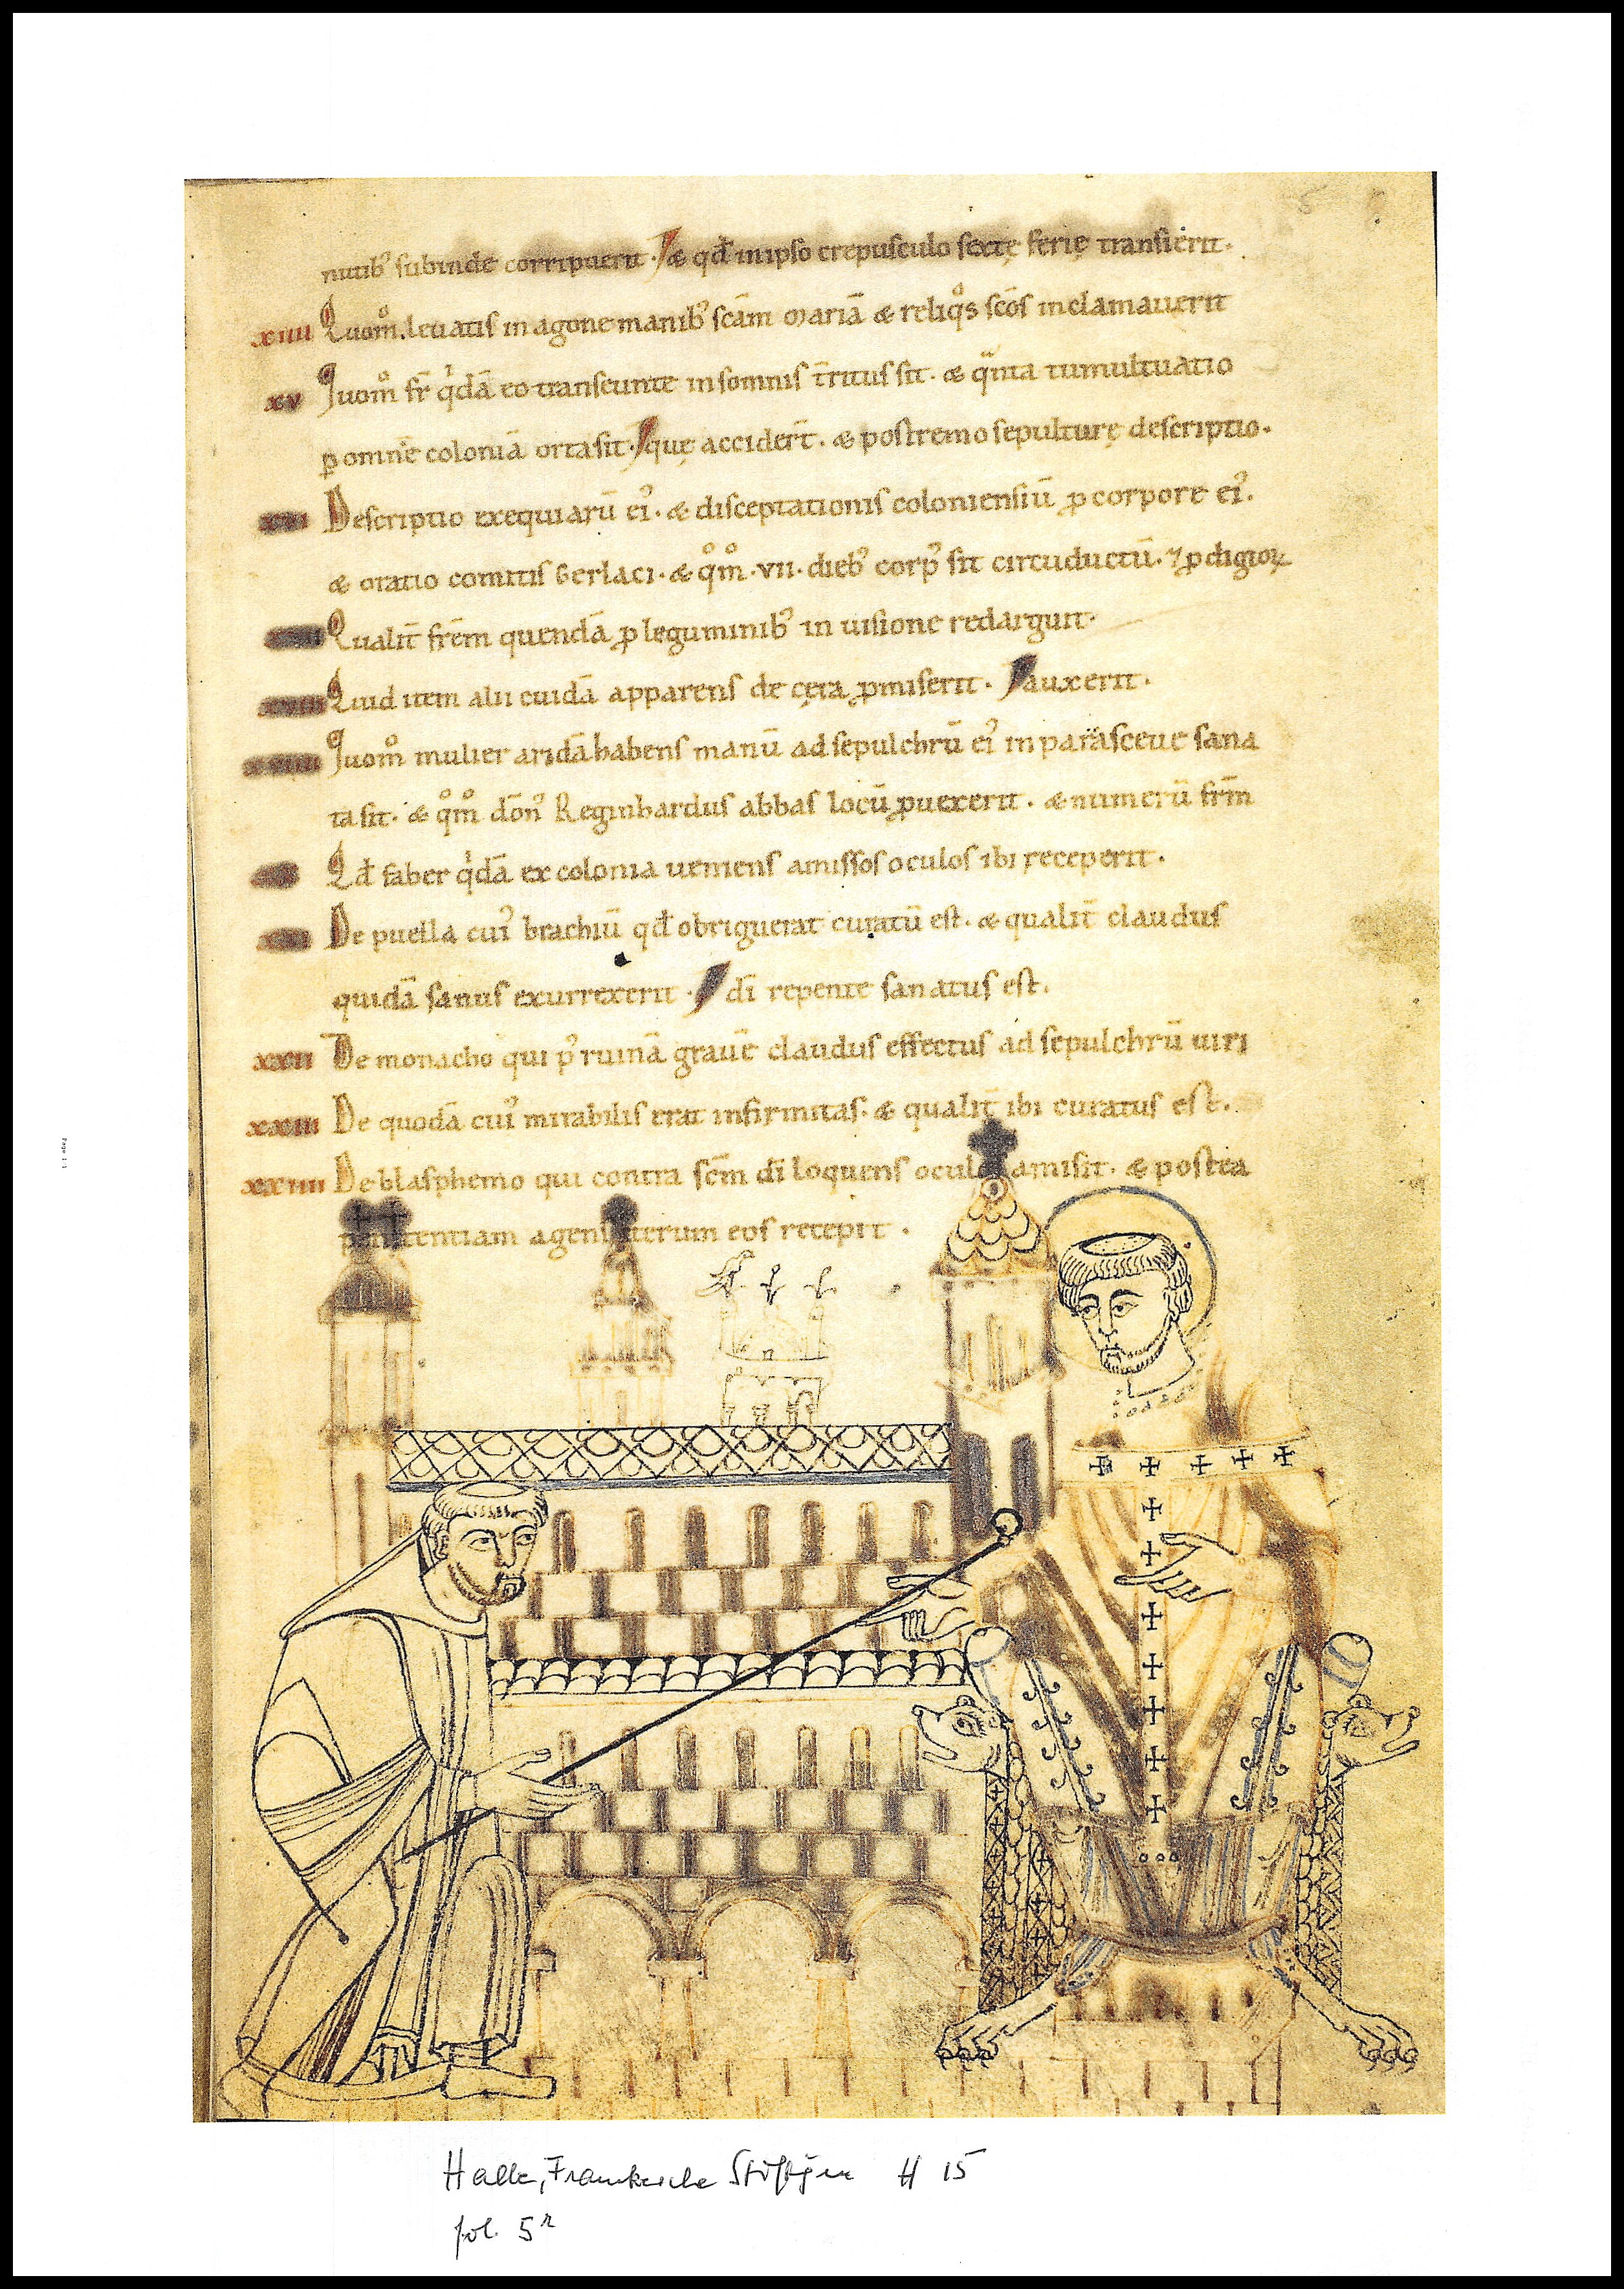 5
nutib᾽ subinde corripuerit. & qđ in ipso crepusculo sextę ferię transierit.
xiiii Quom̊ levatis in agone manib᾽ scā̄m Mariā & reliq̊s scōs inclamauerit
xv Quom̊ fr̄ qͥdā eo transeunte in somnis t̄ritus sit. & q̈nta tumultuatio
ꝑ omnē coloniā orta sit. quę accider̄t. & postremo sepulturę descriptio.
xvi Descriptio exequiarū ei᾽. & disceptationis coloniensiū ꝓ corpore ei᾽.
& oratio comitis Gerlaci. & q̊m̊ .vii. dieb᾽ corp᾽ sit circūductū. ⁊ ꝓdigioꝝ
xvii Qualit̄ fr̄em quendā ꝓ leguminib᾽ in uisione redarguit.
xviii Quid item alii cuidā apparens de cera ꝓmiserit. auxerit.
xviiii Quom̊ mulier aridā habens manū ad sepulchrū ei᾽ in parasceue sana
ta sit. & q̊m̊ dōn᾽ Reginhardus abbas locū ꝓuexerit. & numerū fr̄m
xx Qđ faber qͥdā ex colonia ueniens amissos oculos ibi receperit.
xxi De puella cui᾽ brachiū qđ obriguerat curatū est. & qualit̄ claudus
quidā sanus exurrexerit. dī repente sanatus est.
xxii De monacho qui p᾽ ruinā grauē claudus effectus ad sepulchrū uiri
xxiii De quodā cui᾽ mirabilis erat infirmitas. & qualit̄ ibi curatus est.
xxiiii De blasphemo qui contra sc̄m dī loquens oculos amisit. & postea
penitentiam agens iterum eos recepit.
Page 1-1
Halle, Franckesche Stiftgen H 15
fol. 5r